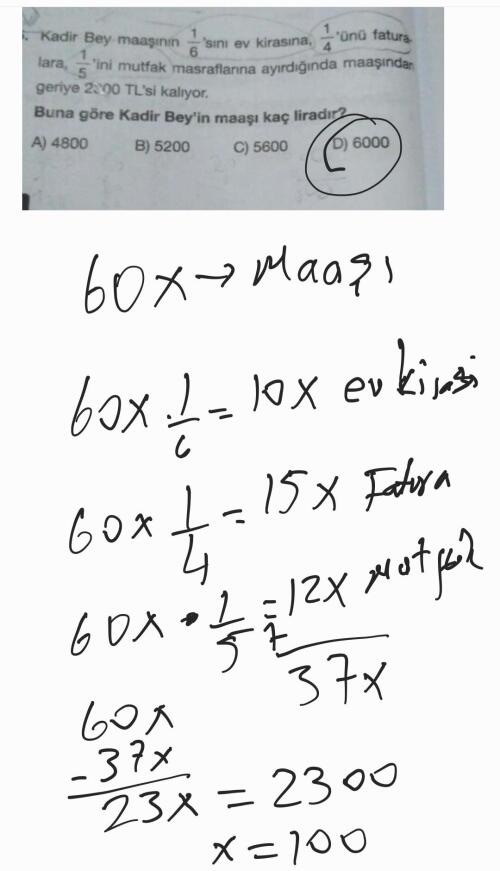 Kadir Bey maaşının 1/6 'sını ev kirasına, 1/4 'ünü fatura
lara, 1/5 'ini mutfak masraflarına ayırdığında maaşından
geriye 2300 TL'si kalıyor.
Buna göre Kadir Bey'in maaşı kaç liradır?
A) 4800 B) 5200 C) 5600 D) 6000
60x → Maaşı
60x . 1/6 = 10x ev kirası
60x 1/4 = 15x Fatura
60x . 1/5 = 12x mutfak
+
37x
60x
- 37x
23x = 2300
x = 100